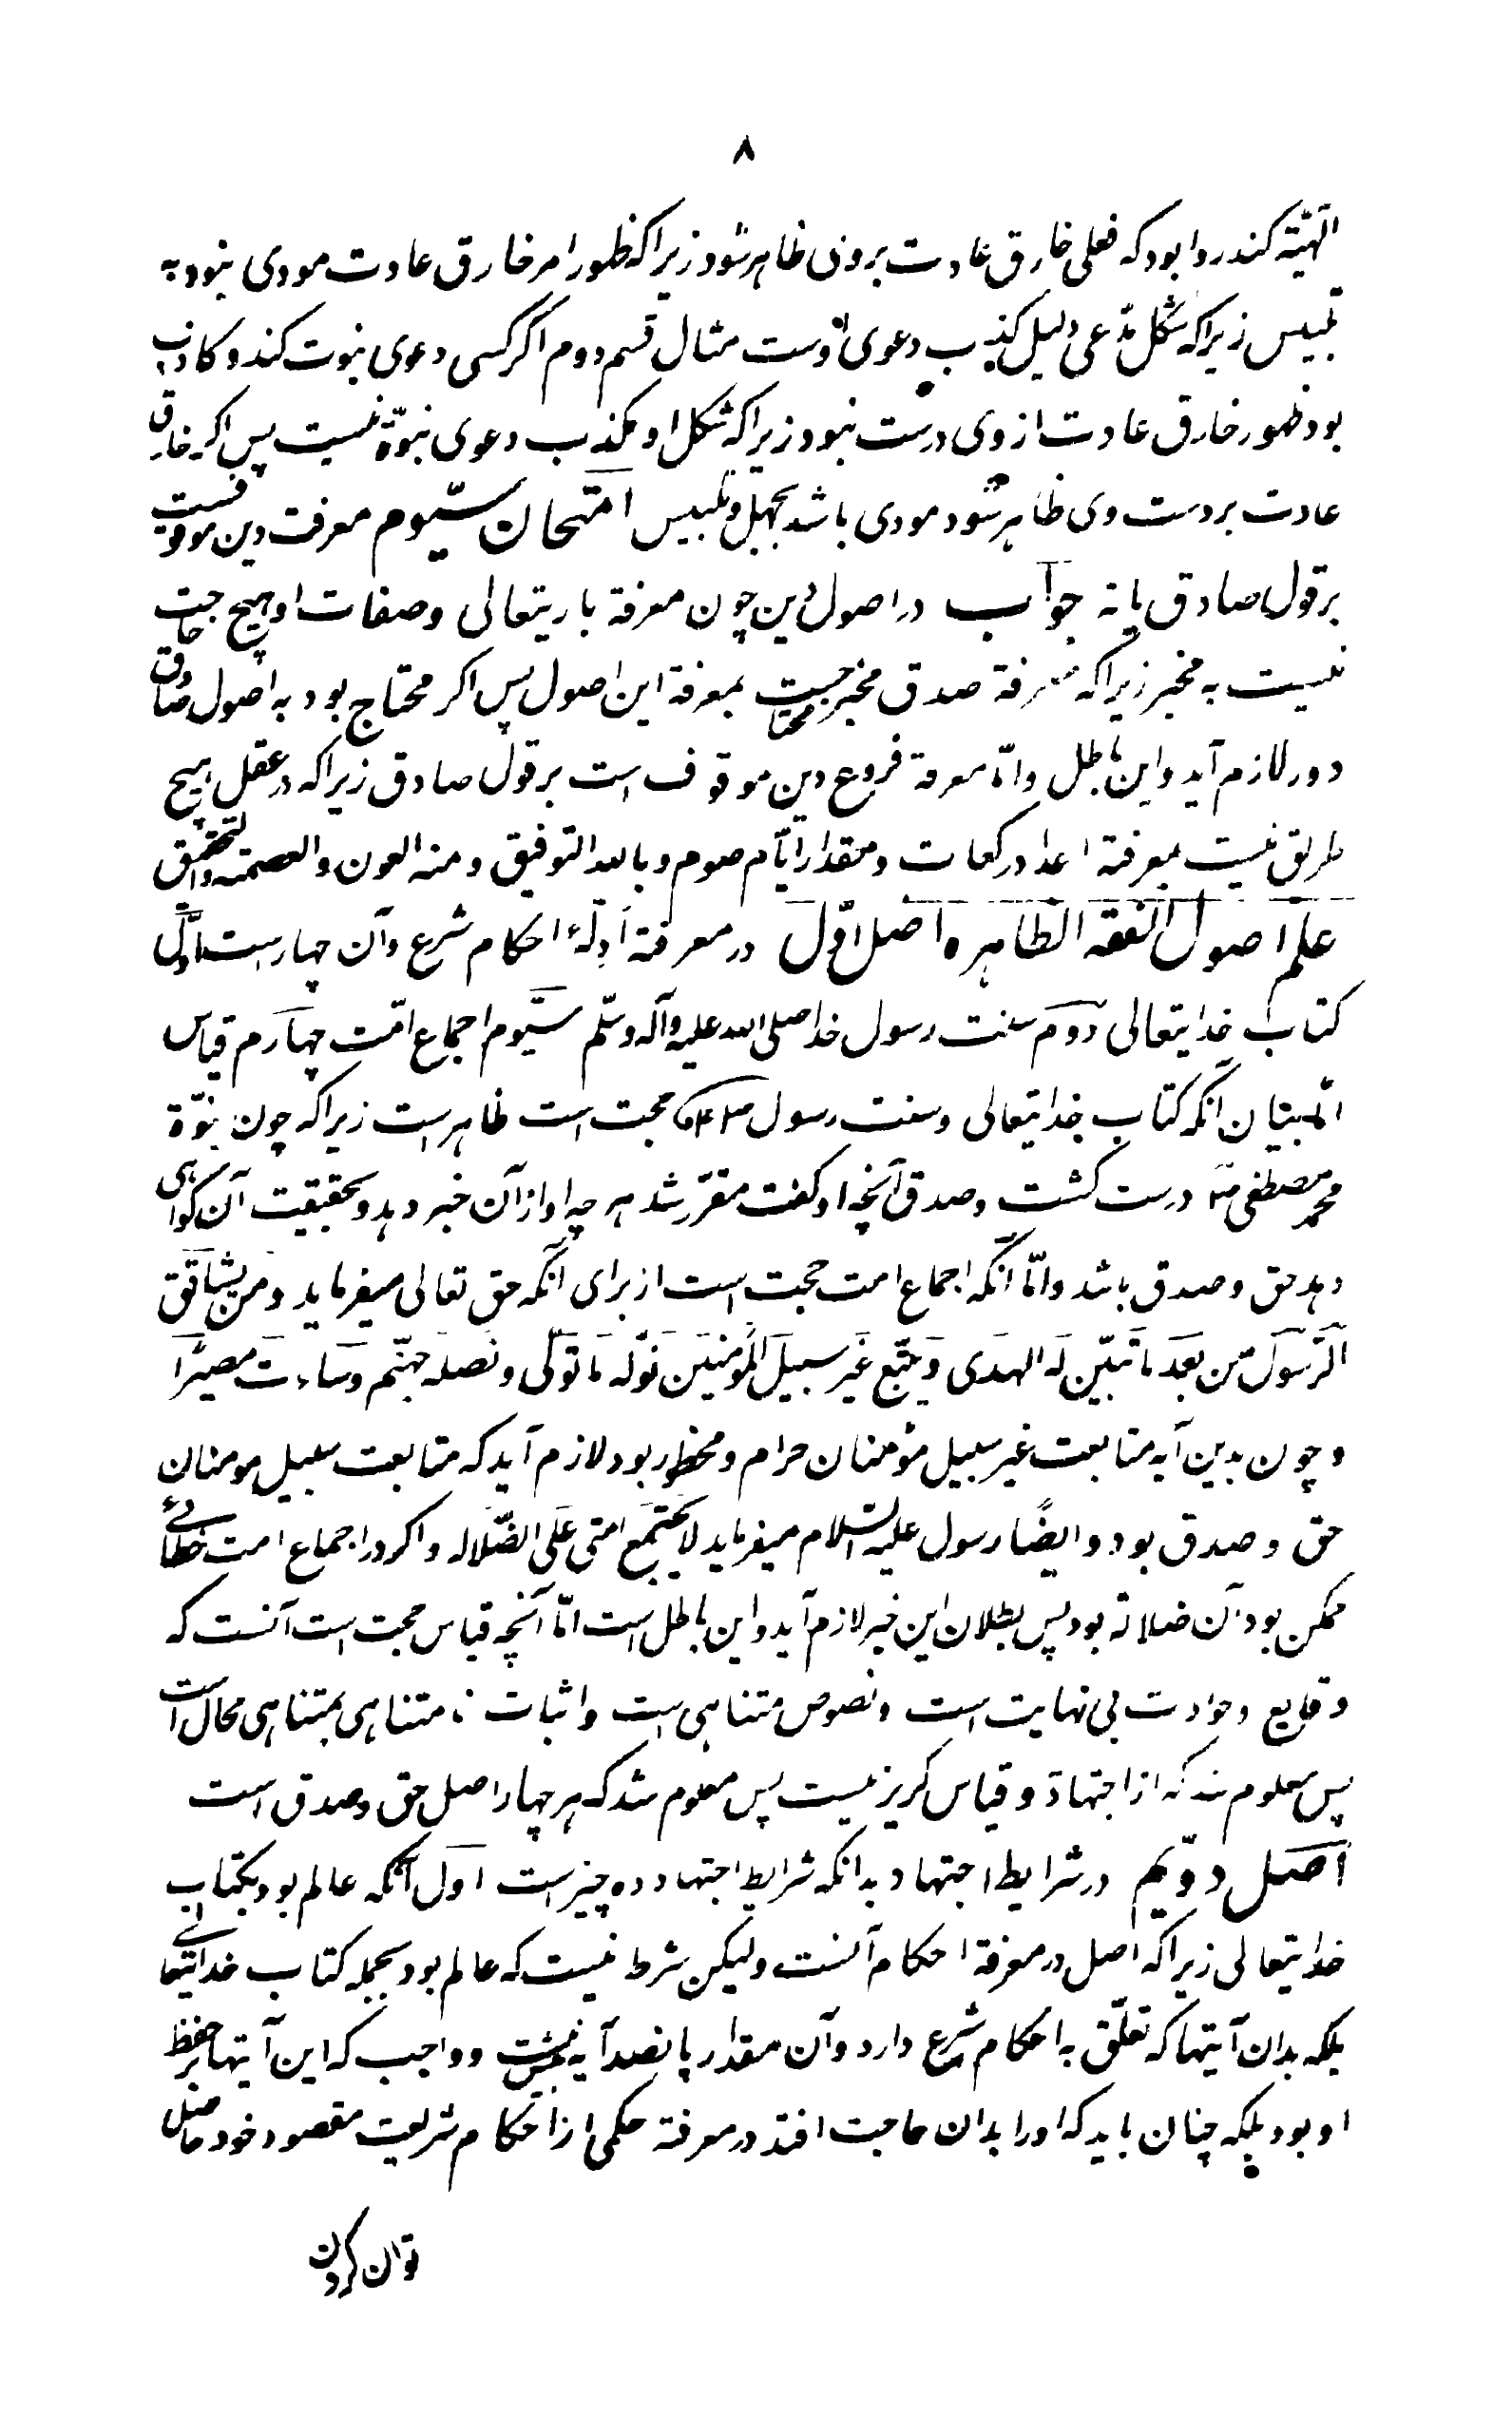 ۸
الهیّة کند روا بود که فعلی خارق عادت بر وی ظاهر شود زیرا که ظهور امر خارق عادت مودی نبود به
تلبیس زیرا که شکل مدّعی دلیل کذب دعوی اوست مثال قسم دوم اگر کسی دعوی نبوت کند و کاذب
بود ظهور خارق عادت از وی درست نبود زیرا که شکل او مکذب دعوی نبوّة نیست پس اگر خارق
عادت بر دست وی ظاهر شود مودی باشد بجهل و تلبیس امتحان سیّوم معرفت دین موقوفست
بر قول صادق یا نه جواب در اصول دین چون معرفة باریتعالی و صفات او هیچ حاجت
نیست به مخبر زیرا که معرفة صدق مخبر محتاجست بمعرفة این اصول پس اکر محتاج بود به اصول صادق
دور لازم آید و این باطل و امّا معرفة فروع دین موقوف است بر قول صادق زیرا که در عقل هیچ
طریق نیست بمعرفة اعداد رکعات و مقدار ایّام صوم و بالله التوفیق و منه العون و العصمة و التحقیق
علم اصول الفقه الظاهره اصل اوّل در معرفة ادلّهٔ احکام شرع و آن چهار است اوّل
کتاب خدایتعالی دوم سنت رسول خدا صلی الله علیه وآله وسلّم سیّوم اجماع امّت چهارم قیاس
امّا بیان آنکه کتاب خدایتعالی و سنت رسول حجت است ظاهر است زیرا که چون نبوّة
محمد مصطفی ص درست کشت و صدق آنچه او کفت مقرّر شد هر چه او از آن خبر دهد و بحقیقت آن کواهی
دهد حق و صدق باشد و امّا آنکه اجماع امت حجت است از برای آنکه حق تعالی میفرماید و من یشاقق
الرّسول من بعد ما تبیّن له الهدی و یتّبع غیر سبیل المؤمنین نولّه ما تولّی و نصله جهنّم و ساءت مصیرًا
و چون بدین آیه متابعت غیر سبیل مؤمنان حرام و محظور بود لازم آید که متابعت سبیل مومنان
حق و صدق بود و ایضًا رسول علیه السّلام میفرماید لا یجتمع امتی علی الضّلاله و اکر در اجماع امت خطائی
ممکن بود آن ضلالة بود پس بطلان این خبر لازم آید و این باطل است امّا آنچه قیاس حجت است آنست که
وقایع و حوادث بی نهایت است و نصوص متناهی است و اثبات نامتناهی بمتناهی محال است
پس معلوم شد که از اجتهاد و قیاس کریز نیست پس معلوم شد که هر چهار اصل حق و صدق است
اصل دوّیم در شرایط اجتهاد بدانکه شرایط اجتهاد ده چیز است اول آنکه عالم بود بکتاب
خدایتعالی زیرا که اصل در معرفة احکام آنست ولیکن شرط نیست که عالم بود بجمله کتاب خدایتعالی
بلکه بدان آیتها که تعلّق به احکام شرع دارد و آن مقدار پانصد آیه بیش نیست و واجب که این آیتها بر حفظ
او بود بلکه چنان باید که او را بدان حاجت افتد در معرفة حکمی از احکام شریعت مقصود خود حاصل
توان کردن